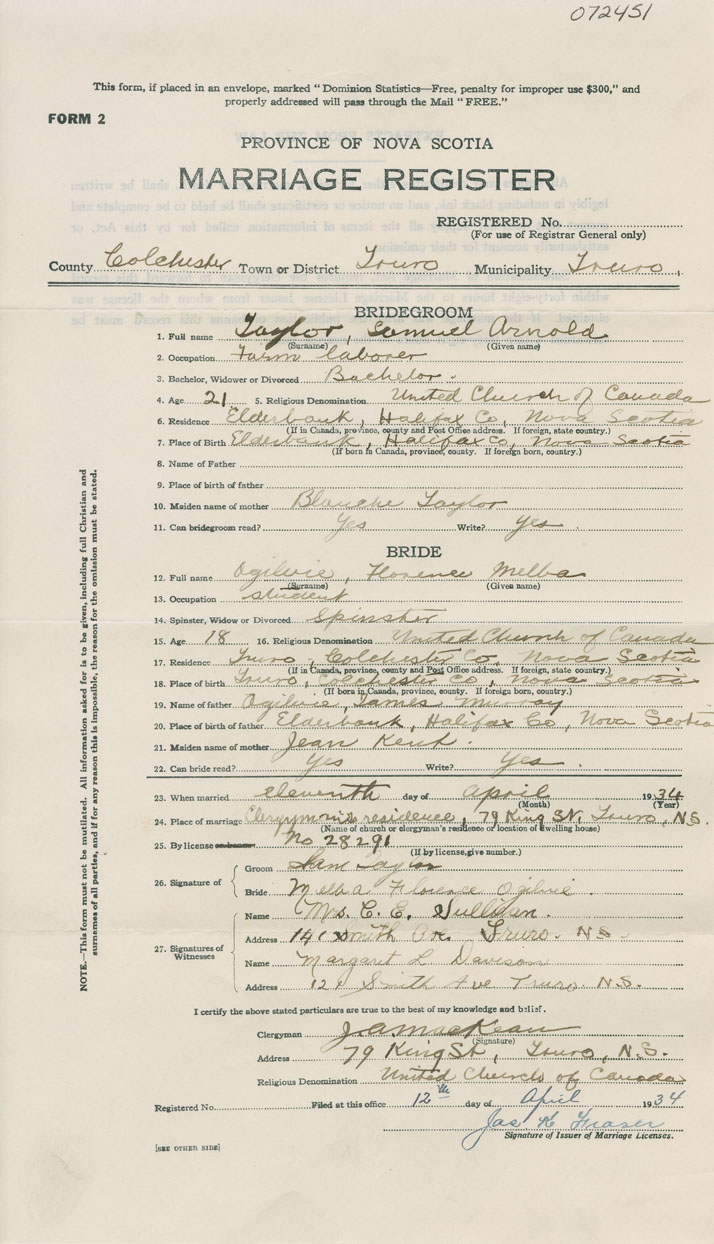 072451
This form, if placed in an envelope, marked "Dominion Statistics—Free, penalty for improper use $300," and
properly addressed will pass through the Mail "FREE."
FORM 2
PROVINCE OF NOVA SCOTIA
MARRIAGE REGISTER
REGISTERED No.
(For use of Registrar General only)
County Colchester Town or District Truro Municipality Truro
BRIDEGROOM
1. Full name Taylor, Samuel Arnold
(Surname) (Given name)
2. Occupation Farm laborer
3. Bachelor, Widower or Divorced Bachelor.
4. Age 21 5. Religious Denomination United Church of Canada
6. Residence Elderbank, Halifax Co, Nova Scotia
(If in Canada, province, county and Post Office address. If foreign, state country.)
7. Place of Birth Elderbank, Halifax Co, Nova Scotia
(If born in Canada, province, county. If foreign born, country.)
8. Name of Father
9. Place of birth of father
10. Maiden name of mother Blanche Taylor
11. Can bridegroom read? Yes Write? Yes.
BRIDE
12. Full name Ogilvie, Florence Melba
(Surname) (Given name)
13. Occupation Student
14. Spinster, Widow or Divorced Spinster
15. Age 18 16. Religious Denomination United Church of Canada
17. Residence Truro, Colchester Co, Nova Scotia
(If in Canada, province, county and Post Office address. If foreign, state country.)
18. Place of birth Truro, Colchester Co, Nova Scotia
(If born in Canada, province, county. If foreign born, country.)
19. Name of father Ogilvie, James Murray
20. Place of birth of father Elderbank, Halifax Co, Nova Scotia
21. Maiden name of mother Jean Kent.
22. Can bride read? Yes Write? Yes.
23. When married eleventh day of April 1934
(Month) (Year)
24. Place of marriage Clergyman's residence, 79 King St, Truro, N.S.
(Name of church or clergyman's residence or location of dwelling house)
25. By license No 28291
(If by license, give number.)
26. Signature of
Groom Sam Taylor
Bride Melba Florence Ogilvie.
27. Signatures of
Witnesses
Name Mrs. C. E. Sullivan.
Address Smith Ave Truro. N.S.
Name Margaret L Davison
Address Smith Ave Truro. N.S.
I certify the above stated particulars are true to the best of my knowledge and belief.
Clergyman J. A. MacKean
(Signature)
Address 79 King St, Truro, N.S.
Religious Denomination United Church of Canada
Registered No. Filed at this office 12th day of April 1934
Jas K Fraser
Signature of Issuer of Marriage Licenses.
[SEE OTHER SIDE]
NOTE.—This form must not be mutilated. All information asked for is to be given, including full Christian and
surnames of all parties, and if for any reason this is impossible, the reason for the omission must be stated.